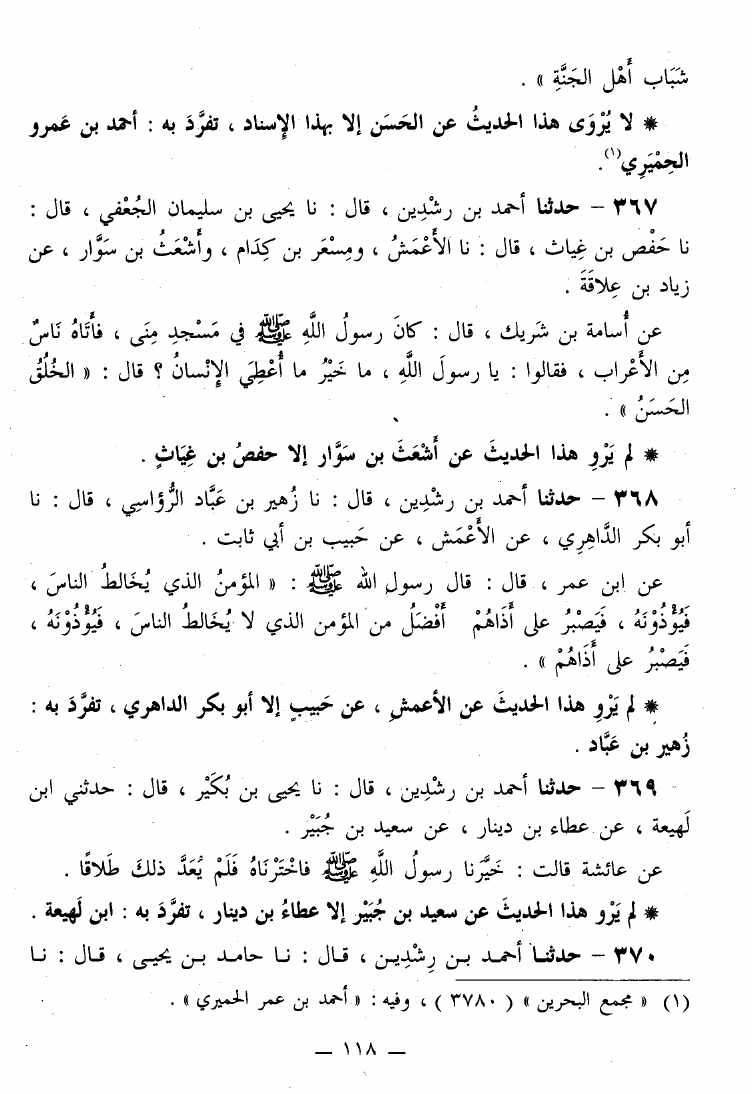 شَبَاب أَهْل الجَنَّةِ » .
* لا يُرْوَى هذا الحديثُ عن الحَسَن إلا بهذا الإِسناد ، تفرَّدَ به : أحمد بن عَمرو
الحِمْيَرِي(١).
٣٦٧ – حدثنا أحمد بن رشْدِين ، قال : نا يحيى بن سليمان الجُعْفي ، قال :
نا حَفْص بن غِياث ، قال : نا الأَعْمَشُ ، ومِسْعَر بن كِدَام ، وأَشْعَثُ بن سَوَّار ، عن
زياد بن عِلاقَةَ .
عن أُسامة بن شَريك ، قال : كانَ رسولُ اللَّهِ ﷺ في مَسْجدِ مِنَى ، فأتَاهُ نَاسٌ
مِن الأَعْراب ، فقالوا : يا رسولَ اللَّهِ ، ما خَيْرُ ما أُعْطِيَ الإِنْسانُ ؟ قال : « الخُلُقُ
الحَسَنُ » .
* لم يَرْوِ هذا الحديثَ عن أَشْعَثَ بن سَوَّار إلا حفصُ بن غِيَاثٍ .
٣٦٨ – حدثنا أحمد بن رشْدِين ، قال : نا زُهير بن عَبَّاد الرُّؤاسِي ، قال : نا
أبو بكر الدَّاهِرِي ، عن الأَعْمَش ، عن حَبيب بن أبي ثابت .
عن ابن عمر ، قال : قال رسول الله ﷺ : « المؤمنُ الذي يُخَالطُ الناسَ ،
فَيُؤْذُوْنَهُ ، فَيَصْبُر على أَذَاهُمْ أَفْضَلُ من المؤمن الذي لا يُخَالطُ الناسَ ، فَيُؤْذُوْنَهُ ،
فَيَصْبُرُ على أَذَاهُمْ » .
* لم يَرْوِ هذا الحديثَ عن الأعمشِ ، عن حَبيبٍ إلا أبو بكر الداهري ، تفرَّدَ به :
زُهير بن عَبَّاد .
٣٦٩ – حدثنا أحمد بن رشْدِين ، قال : نا يحيى بن بُكَيْر ، قال : حدثني ابن
لَهيعة ، عن عطاء بن دينار ، عن سعيد بن جُبَيْر .
عن عائشة قالت : خَيَّرنا رسولُ اللَّهِ ﷺ فاخْتَرْنَاهُ فَلَمْ يُعَدَّ ذلكَ طَلَاقًا .
* لم يَرْو هذا الحديثَ عن سعيد بن جُبَيْر إلا عطاءُ بن دينار ، تفرَّد به : ابن لَهيعة .
٣٧٠ – حدثنا أحمد بن رِشْدِين ، قال : نا حامد بن يحيى ، قال : نا
(١) « مجمع البحرين » ( ٣٧٨٠ ) ، وفيه : « أحمد بن عمر الحميري » .
– ١١٨ –